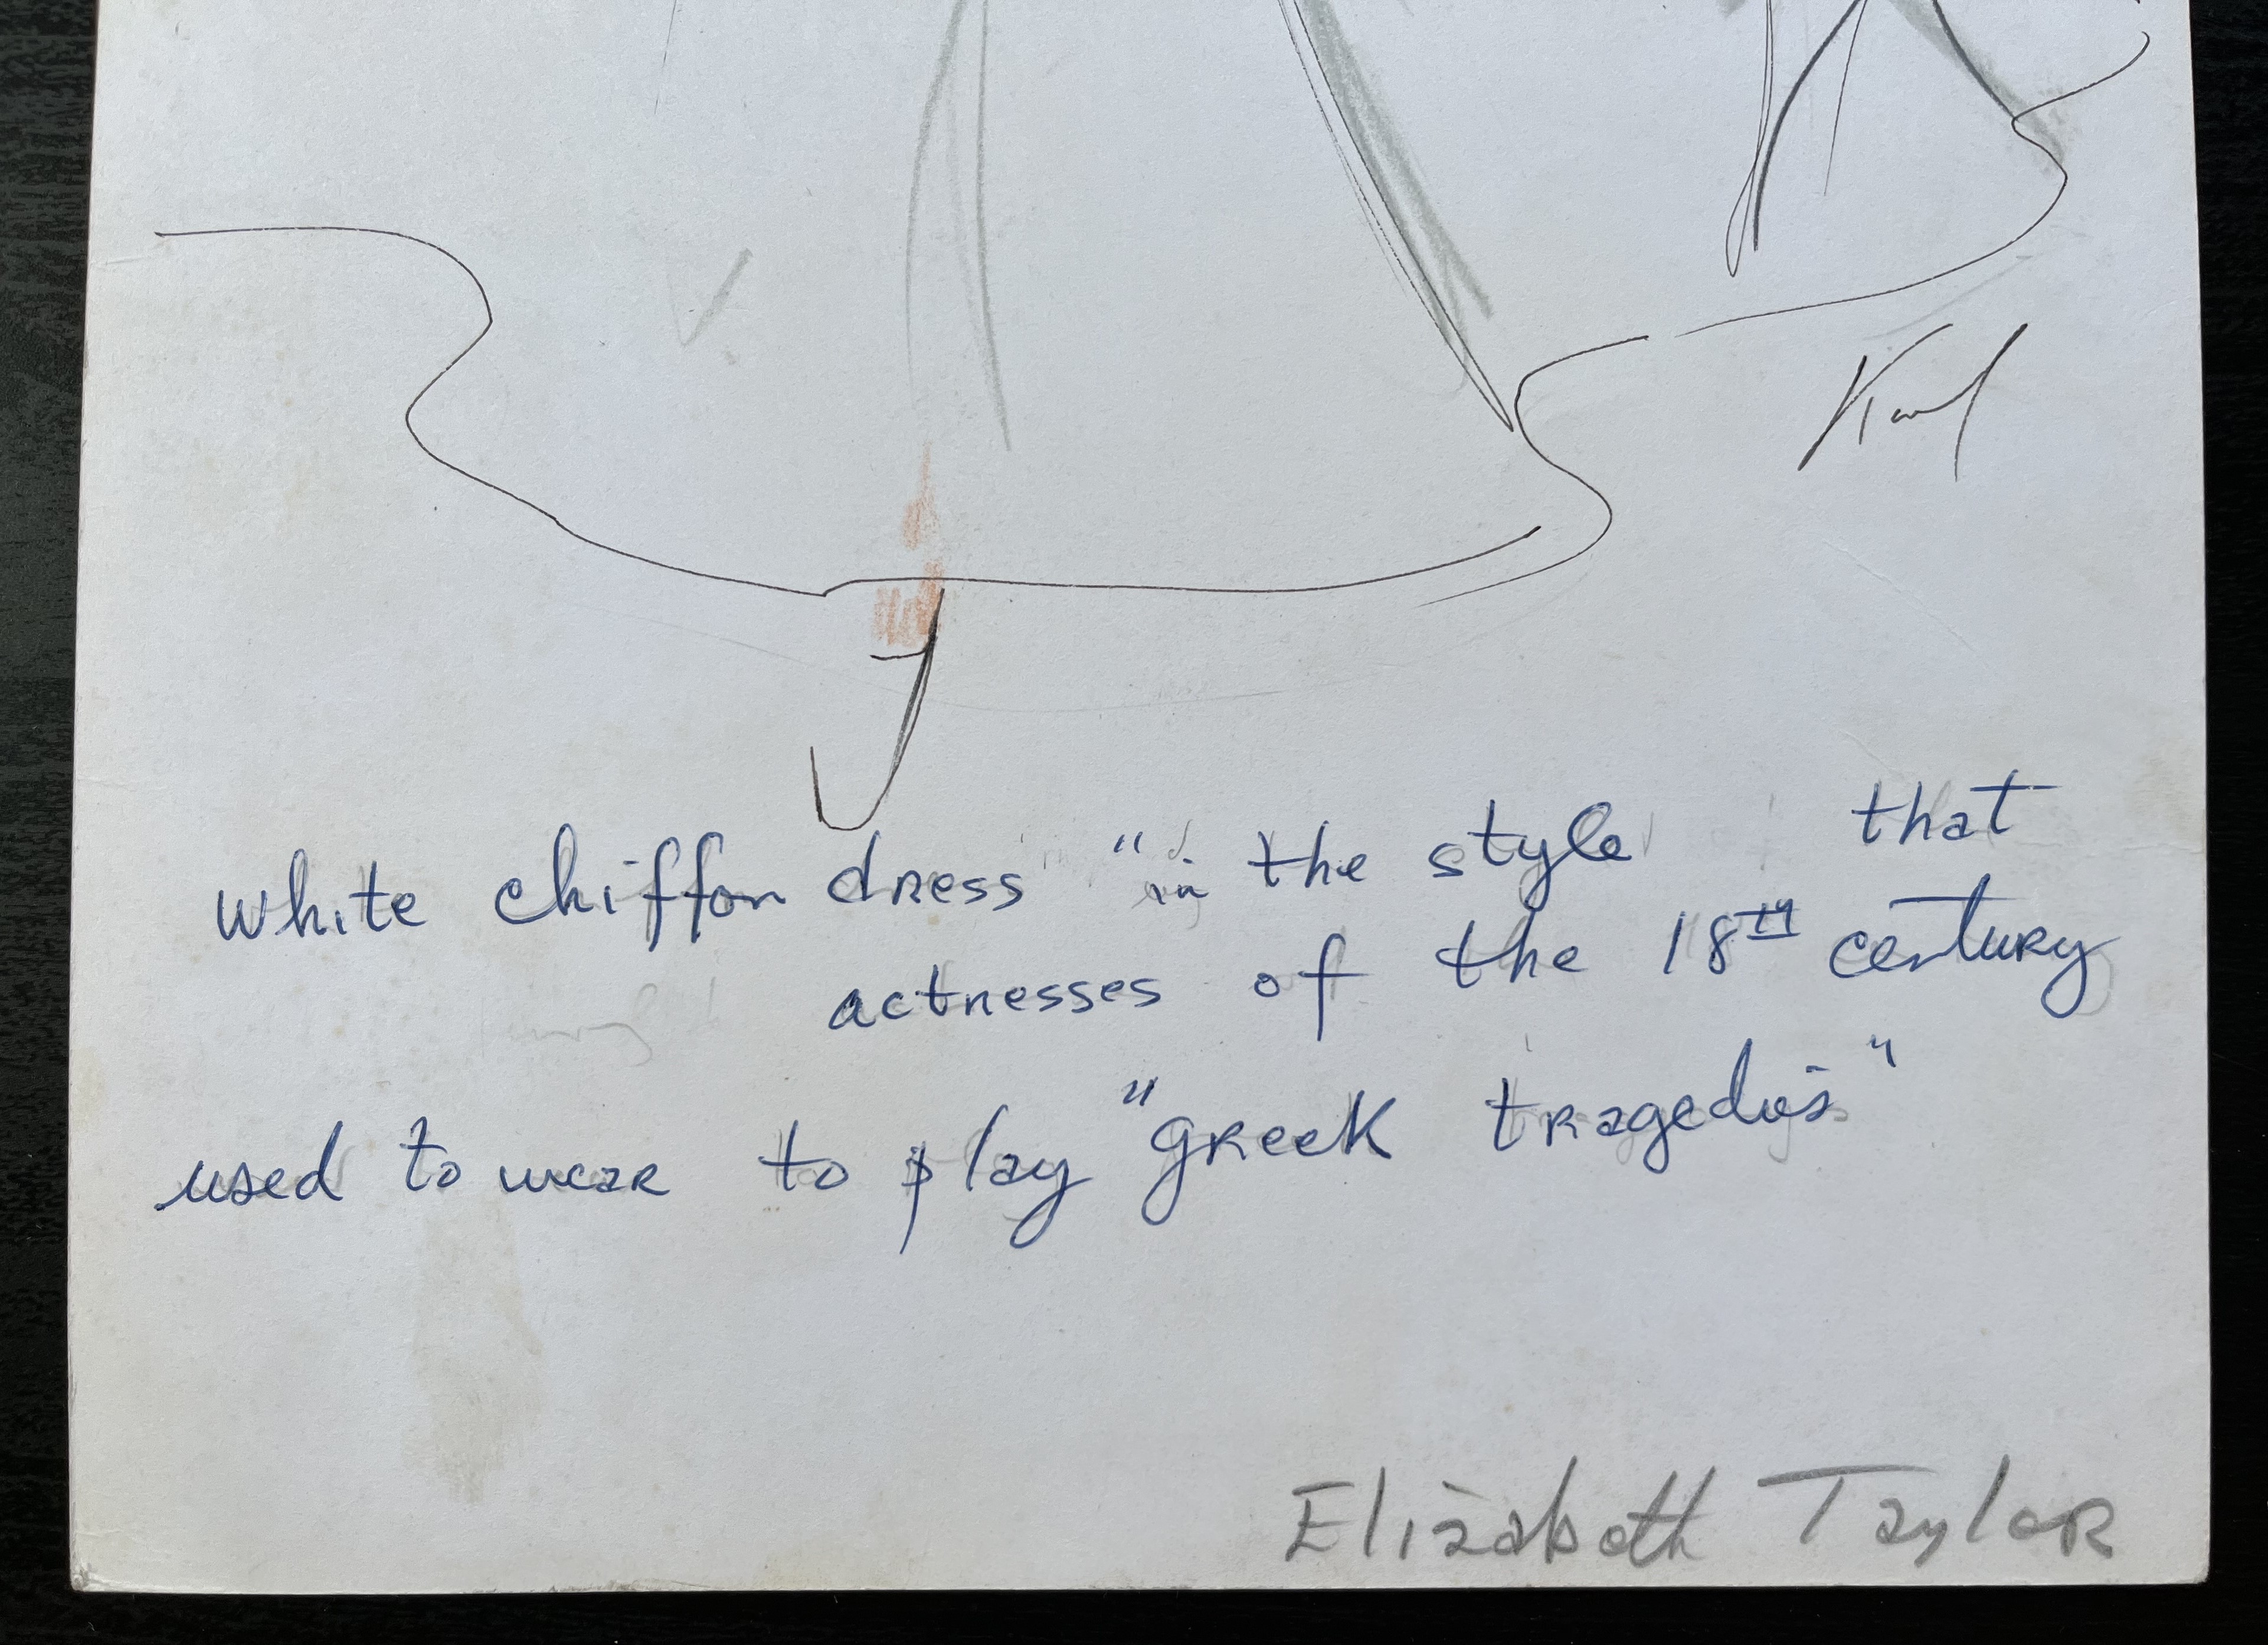 Karl
white chiffon dress "in the style that
actresses of the 18TH century
used to wear to play "greek tragedies"
Elizabeth Taylor